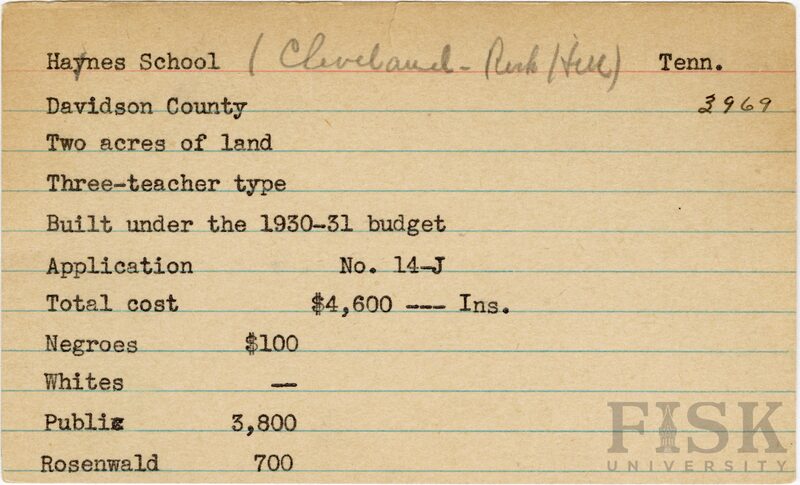 Haynes School (Cleveland - Rock Hill) Tenn.
Davidson County 3969
Two acres of land
Three-teacher type
Built under the 1930-31 budget
Application No. 14-J
Total cost $4,600 --- Ins.
Negroes $100
Whites —
Public 3,800
Rosenwald 700
FISK
UNIVERSITY